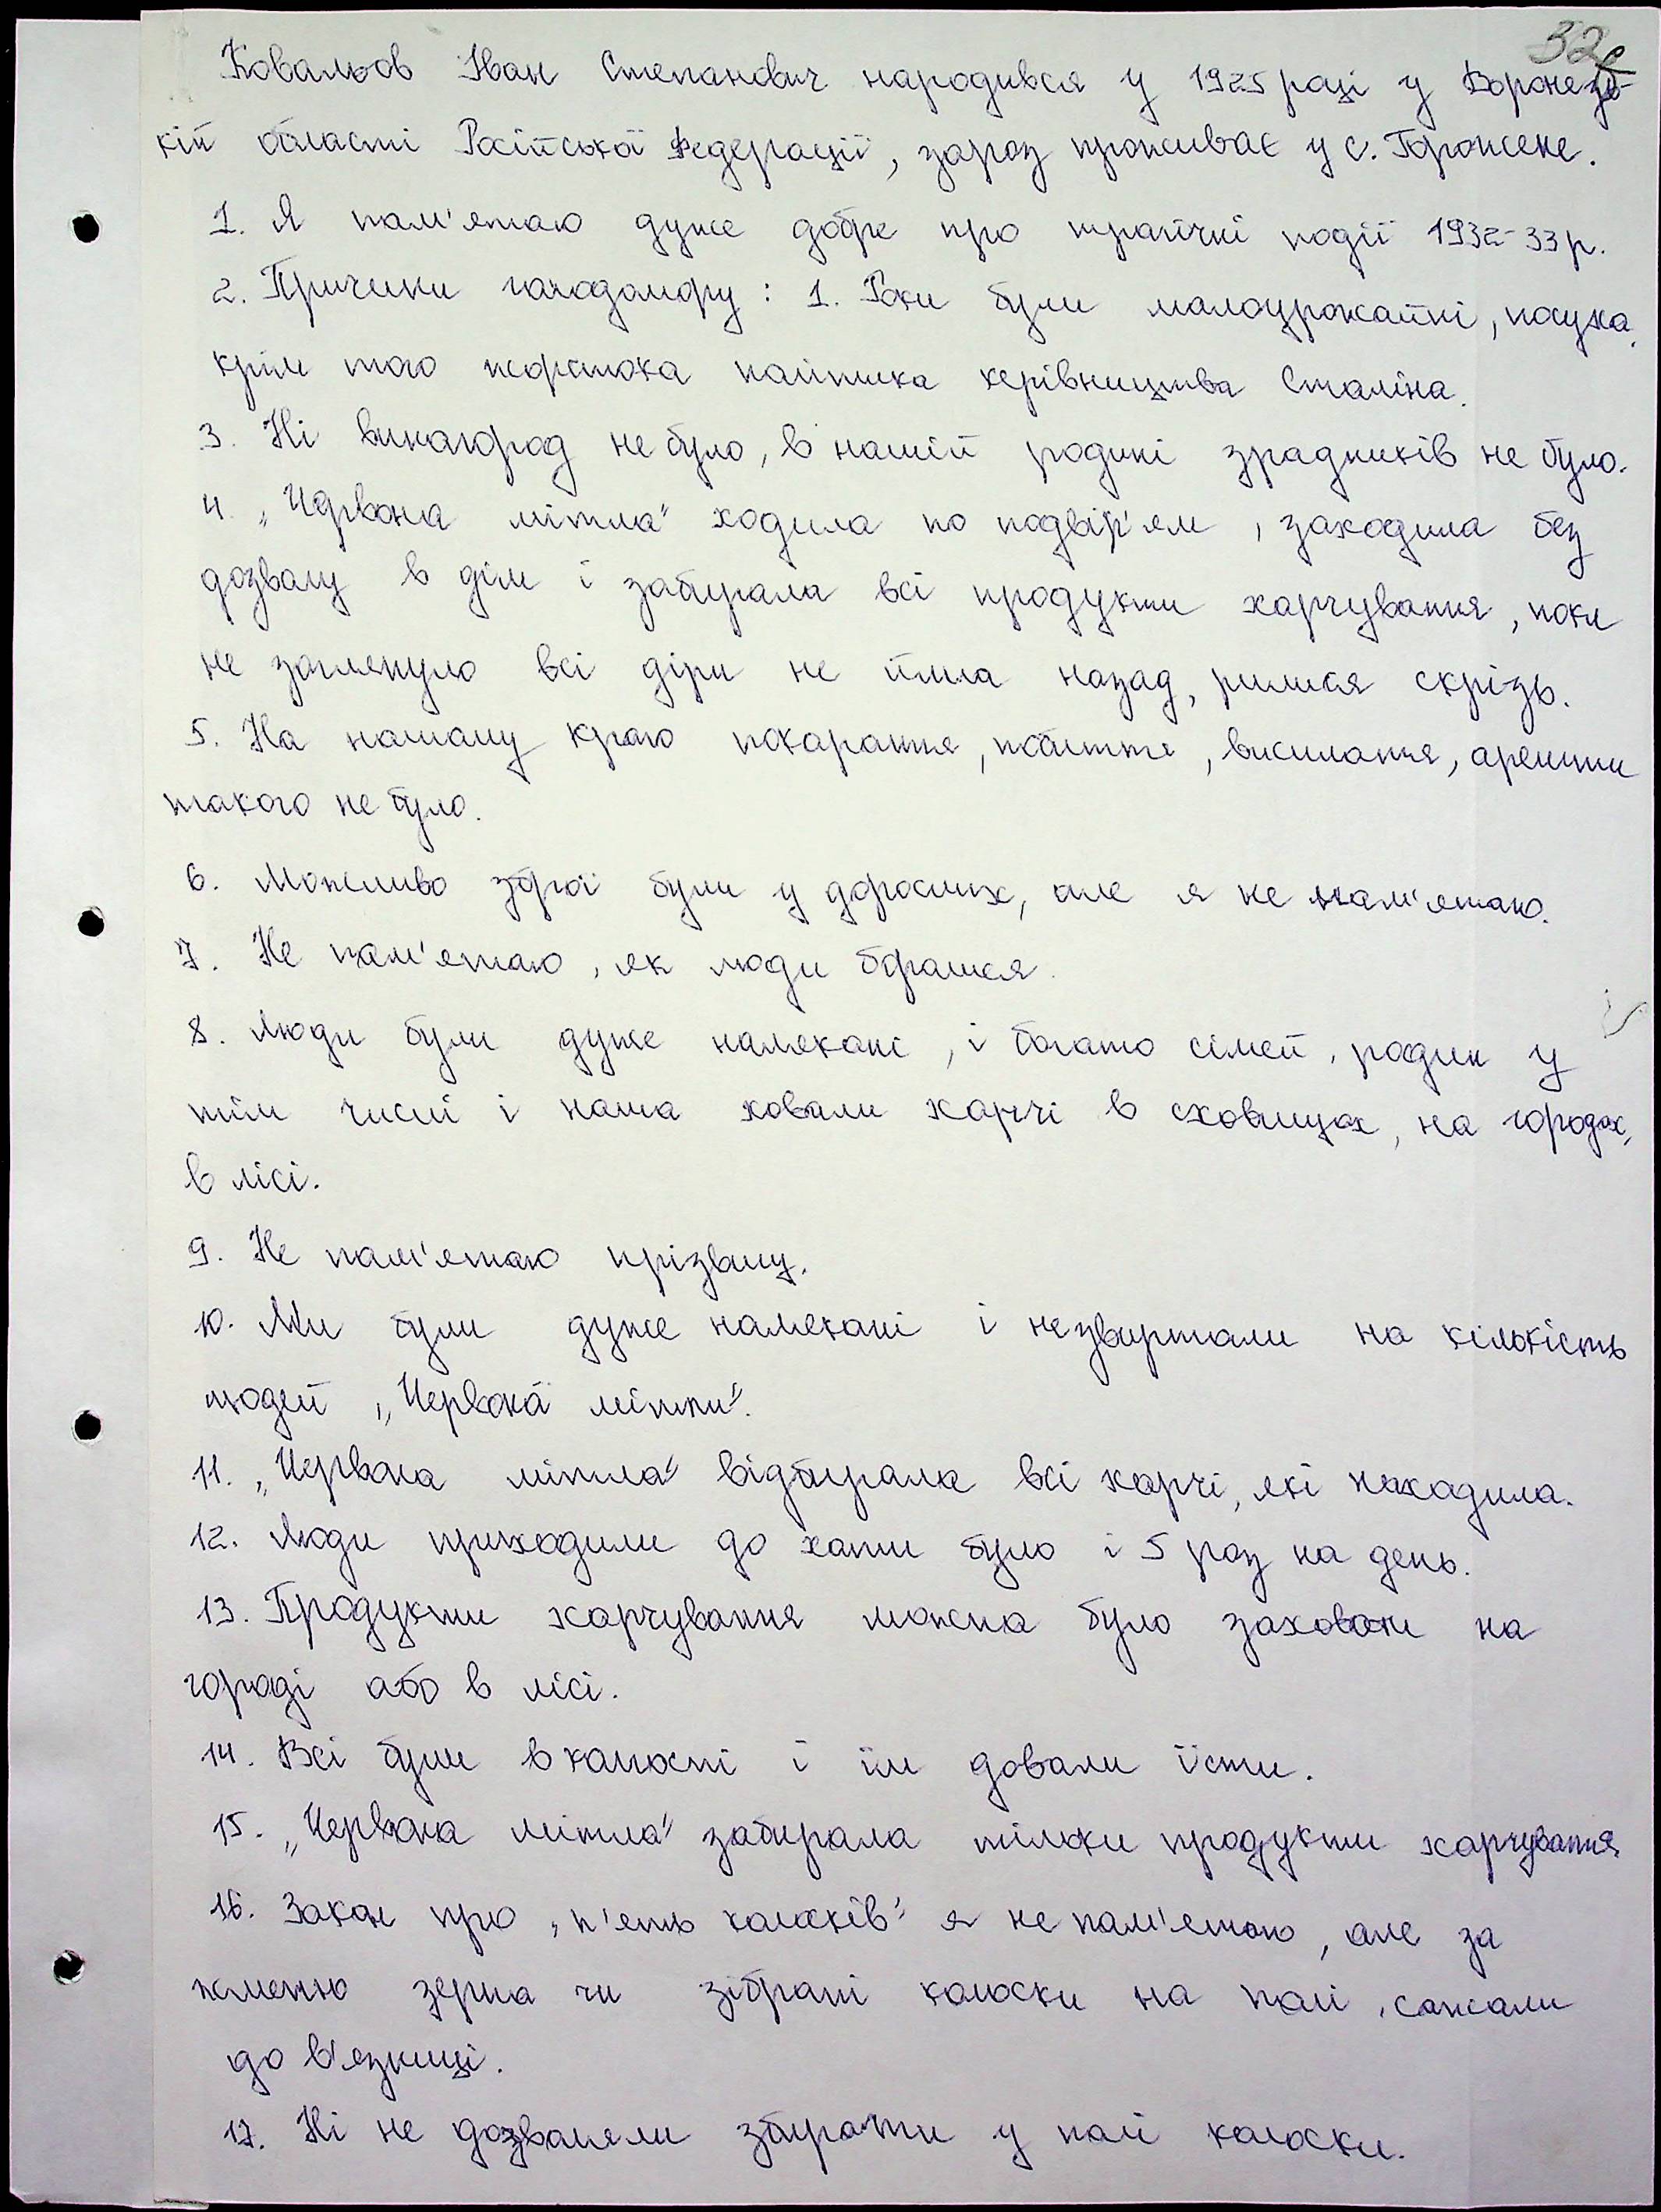 32
Ковальов Іван Степанович народився у 1925 році у Воронезь-
кій області Російської Федерації, зараз проживає у с. Горожене.
1. Я пам'ятаю дуже добре про трагічні події 1932-33 р.
2. Причини голодомору : 1. Роки були малоурожайні, посуха,
крім того жорстока політика керівництва Сталіна.
3. Ні винагород не було, в нашій родині зрадників не було.
4. „Червона мітла" ходила по подвір'ям, заходила без
дозволу в дім і забирала всі продукти харчування, поки
не заглянуло всі діри не йшла назад, рилися скрізь.
5. На нашому краю покарання, побиття, висилання, арешти
такого не було.
6. Можливо зброї були у дорослих, але я не пам'ятаю.
7. Не пам'ятаю, як люди боролися.
8. Люди були дуже налякані, і багато сімей, родин у
тім числі і наша ховали харчі в сховищах, на городах,
в лісі.
9. Не пам'ятаю прізвищ.
10. Ми були дуже налякані і не звертали на кількість
людей „Червоної мітли".
11. „Червона мітла" відбирала всі харчі, які находила.
12. Люди приходили до хати було і 5 раз на день.
13. Продукти харчування можна було заховати на
городі або в лісі.
14. Всі були в колгоспі і їм давали їсти.
15. „Червона мітла" забирала тільки продукти харчування
16. Закон про „п'ять колосків" я не пам'ятаю, але за
жменю зерна чи зібрані колоски на полі, сажали
до в'язниці.
17. Ні не дозволяли збирати у полі колоски.